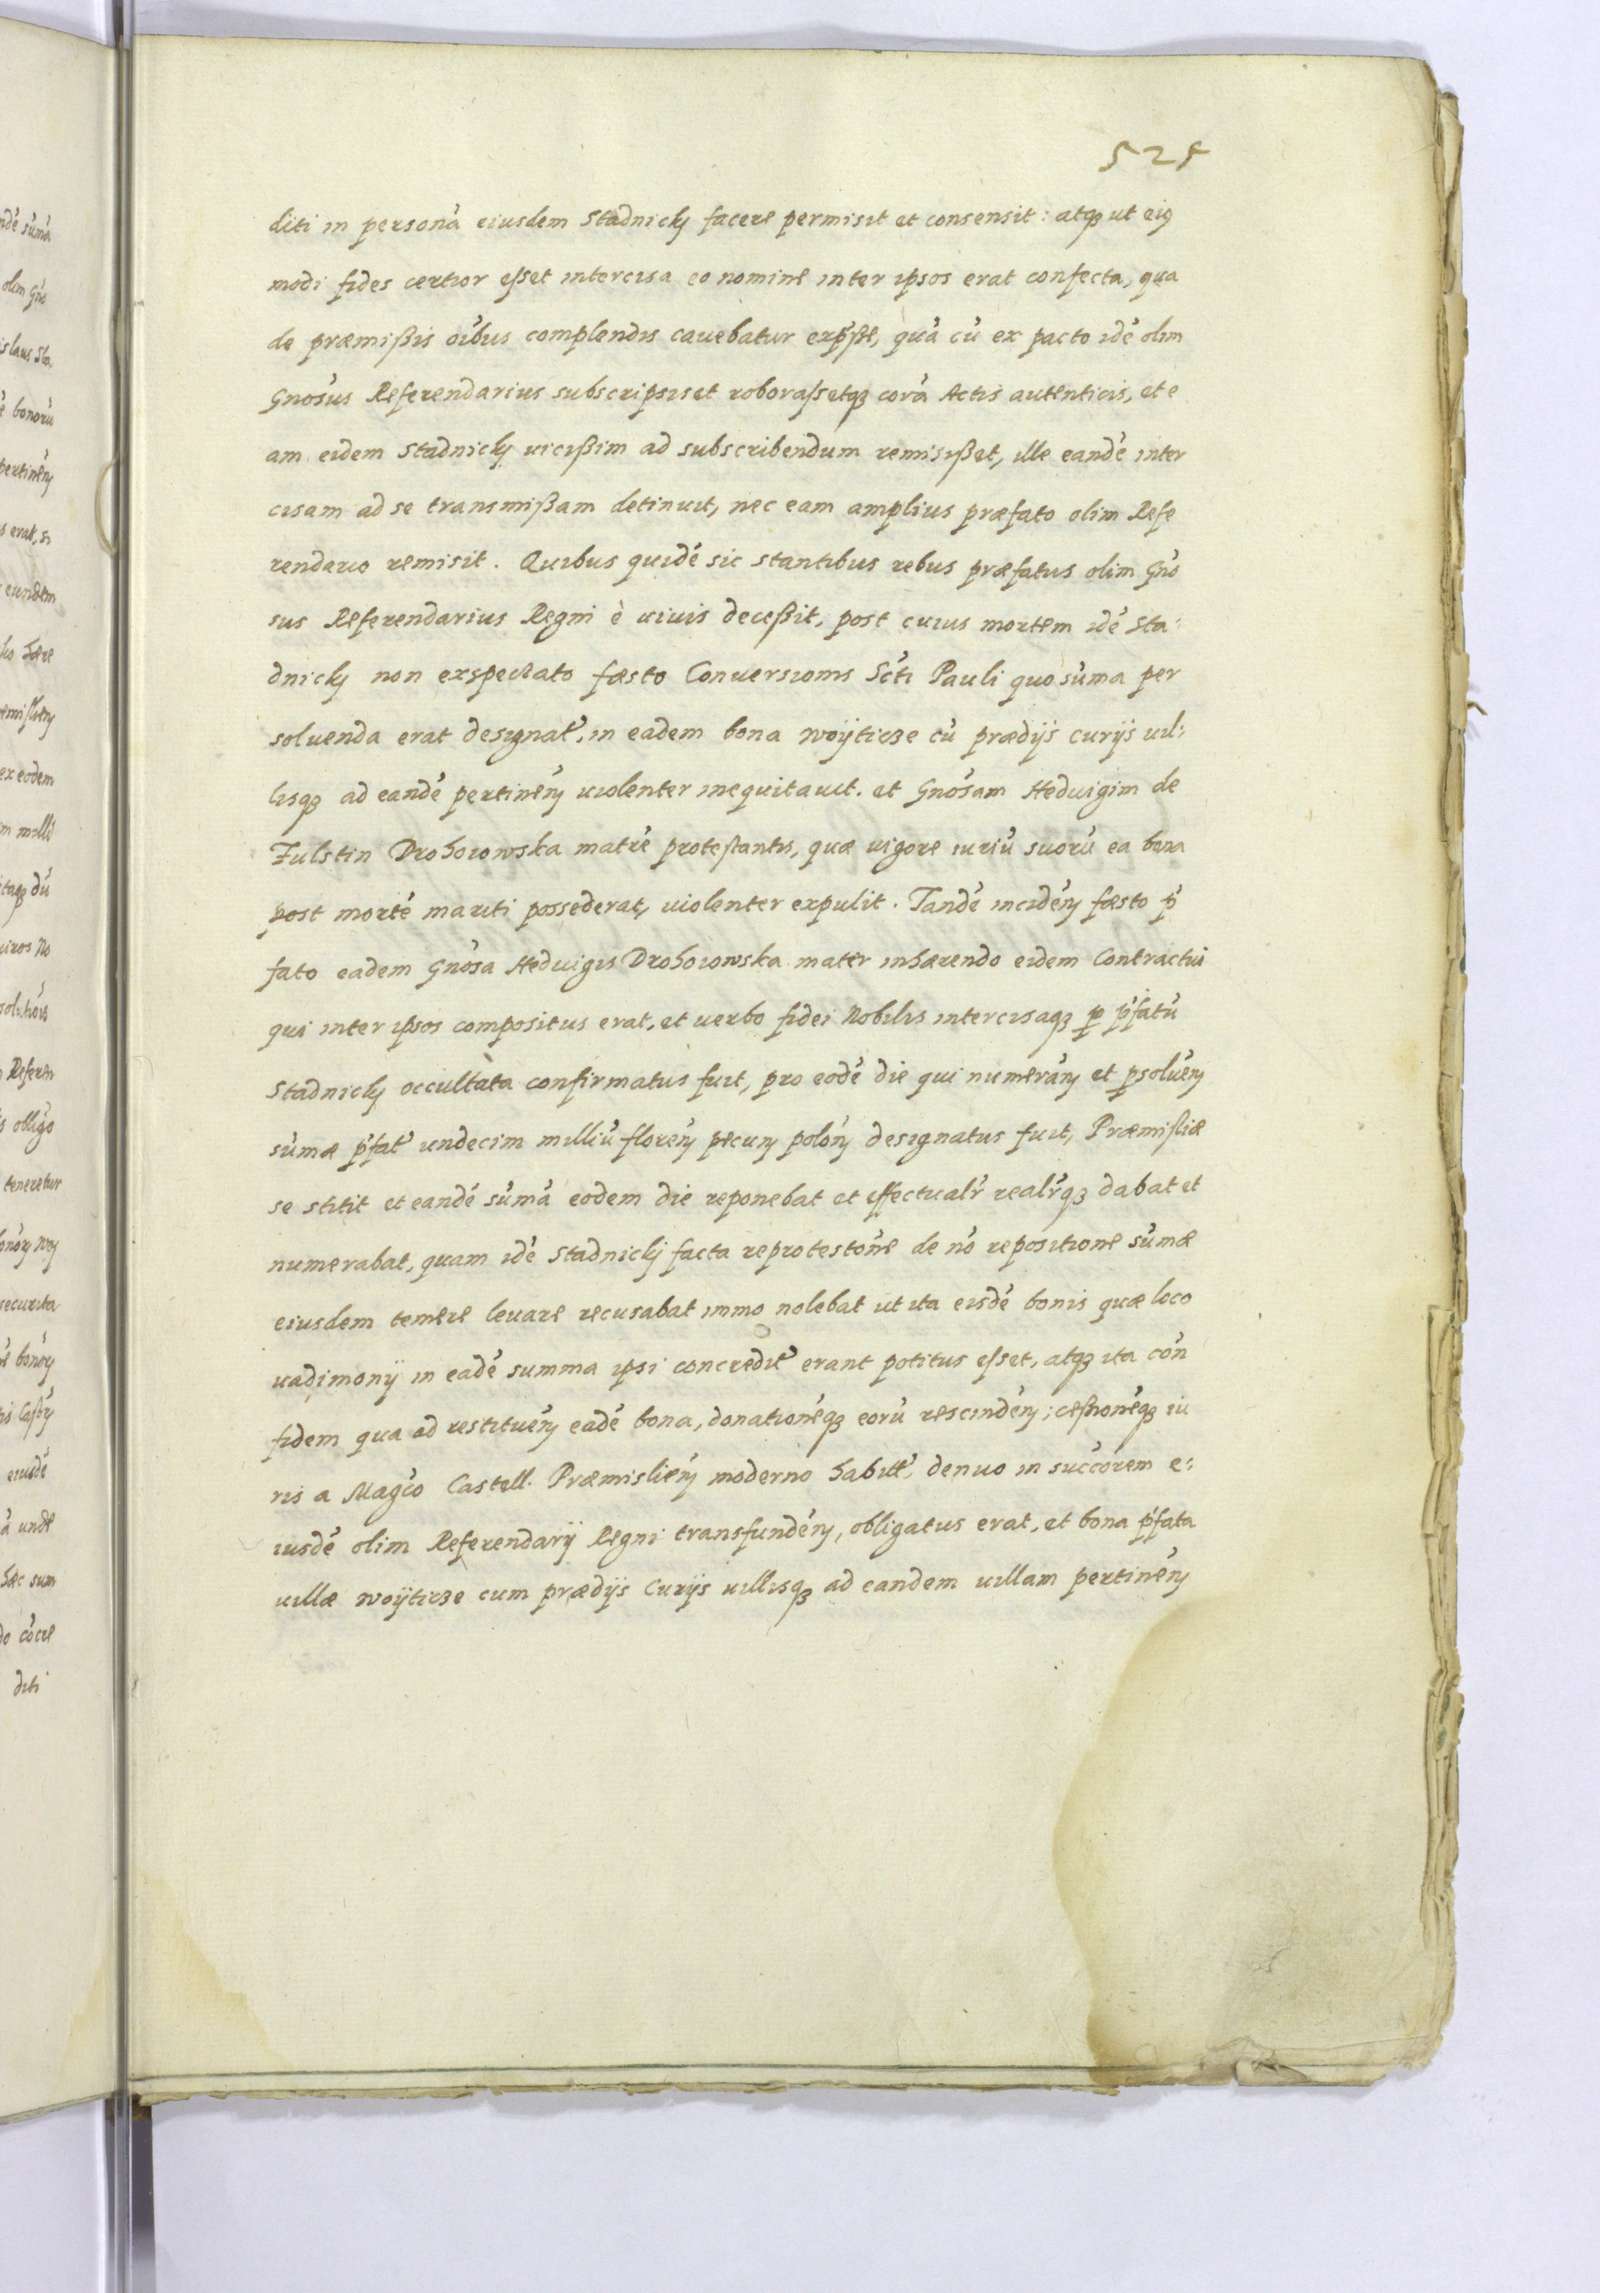 525
diti in personā eiusdem Stadnickj facere permisit et consensit: atqȝ ut eiꝰ
modi fides certior esset intercisa eo nomine inter ipsos erat confecta, qua
de præmißis oībus complendis cavebatur exp̄sse, quā cū ex pacto idē olim
Gnōsus Referendarius subscripsiset roborassetqȝ corā Actis autenticis, et e
am eidem Stadnickj vicißim ad subscribendum remisißet, ille eandē inter
cisam ad se transmißam detinuit, nec eam amplius præfato olim Refe
rendario remisit. Quibus quidē sic stantibus rebus præfatus olim Gnō
sus Referendarius Regni è vivis deceßit, post cuius mortem idē Sta:
dnickj non exspectato fæsto Conversionis Scti Pauli quo sūma per
solvenda erat designat', in eadem bona Woÿticze cū prædijs curijs vil:
lisqȝ ad eandē pertinēn violenter inequitavit. et Gnōsam Hedvigim de
Fulstin Drohoiowska matrē protestantis, quæ vigore iuriū suorū ea bona
post mortē mariti possederat, violenter expulit. Tandē incidēn fæsto p̄
fato eadem Gnōsa Hedvigis Drohoiowska mater inhærendo eidem Contractui
qui inter ipsos compositus erat, et verbo fidei Nobilis intercisaqȝ ꝑ p̄fatū
Stadnickj occultata confirmatus fuit, pro eodē die qui numerān et ꝑsolvēn
sūmæ p̄fat' undecim milliū florēn pecun polōn designatus fuit, Præmisliæ
se stitit et eandē sūmā eodem die reponebat et effectualr' realr'qȝ dabat et
numerabat, quam idē Stadnickj facta reprotestōne de nō repositione sūmæ
eiusdem temere levare recusabat immo nolebat ut ita eisdē bonis quæ loco
vadimonij in eadē summa ipsi concredit' erant potitus esset, atqȝ ita cōn
fidem qua ad restituēn eadē bona, donationēqȝ eorū rescindēn; ceßionēqȝ iu
ris a Magco Castell. Præmisliēn moderno habit', denuo in succōrem e:
iusdē olim Referendarij Regni transfundēn, obligatus erat, et bona p̄fata
villæ Woÿticze cum prædijs Curijs villisqȝ ad eandem villam pertinēn